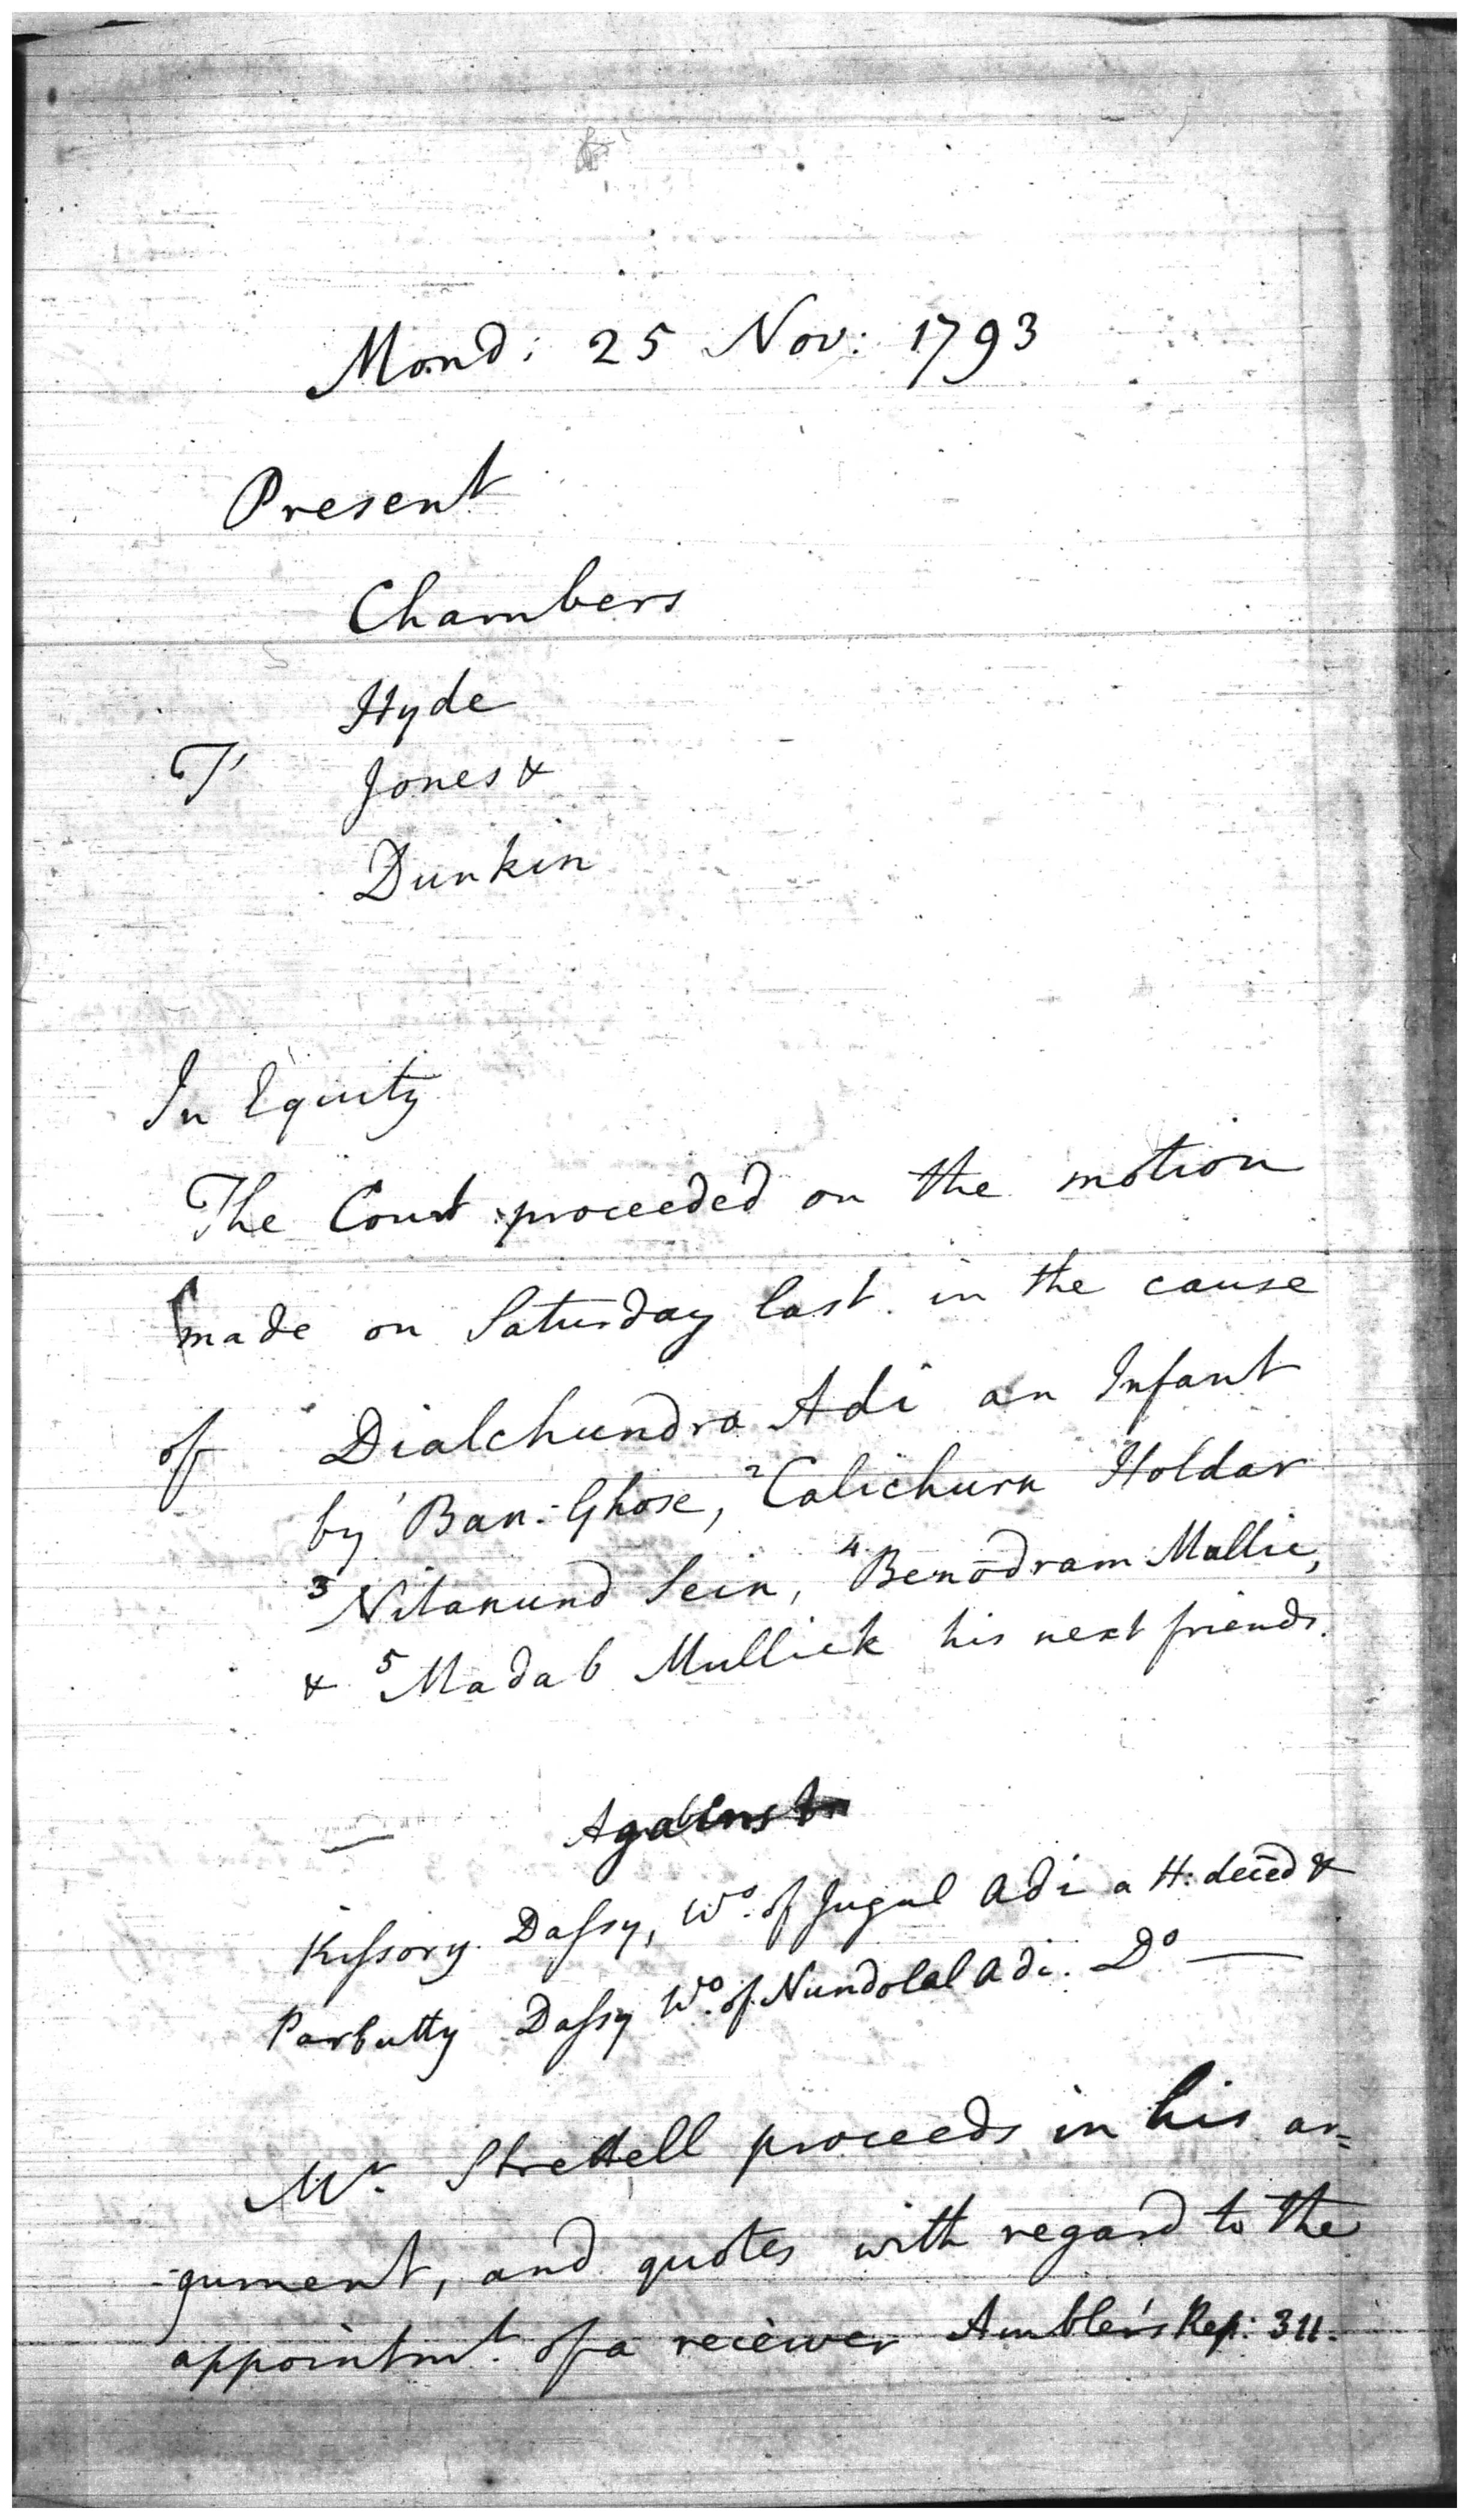 Mond: 25 Nov: 1793
Present
Chambers
Hyde
T Jones &
Dunkin
In Equity
The Court proceeded on the motion
made on Saturday last in the cause
of Dialchundra Adi an Infant
by 1 Ban: Ghose, 2 Calichurn Holdar
3 Nitanund Sein, 4 Benodram Mullic,
& 5 Madab Mullick his next friends.
— Against
Kissory Dassy, Wo. of Jugul Adi a H: deced &
Parbutty Dassy Wo. of Nundolal Adi. Do —
Mr. Strettell proceeds in his ar=
-gument, and quotes with regard to the
appointmt. of a reciever Ambler's Rep: 311.